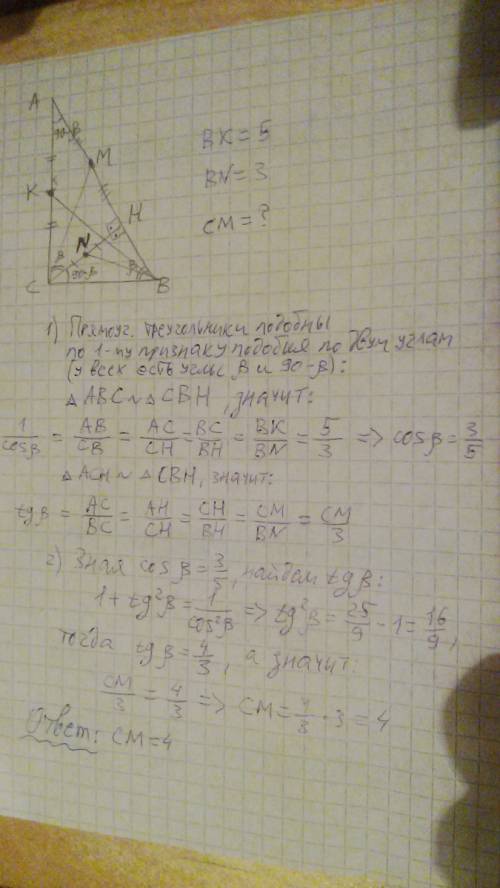 A
90-β
M
K
H
N
β
β
90-β
C
B
BK = 5
BN = 3
CM = ?
1) Прямоуг. треугольники подобны
по 1-му признаку подобия по двум углам
(у всех есть углы β и 90-β):
△ABC ~ △CBH, значит:
1/cosβ = AB/CB = AC/CH = BC/BH = BK/BN = 5/3 => cosβ = 3/5
△ACH ~ △CBH, значит:
tgβ = AC/BC = AH/CH = CH/BH = CM/BN = CM/3
2) Зная cosβ = 3/5, найдем tgβ:
1 + tg²β = 1/cos²β => tg²β = 25/9 - 1 = 16/9,
тогда tgβ = 4/3, а значит:
CM/3 = 4/3 => CM = 4/3 · 3 = 4
Ответ: CM = 4